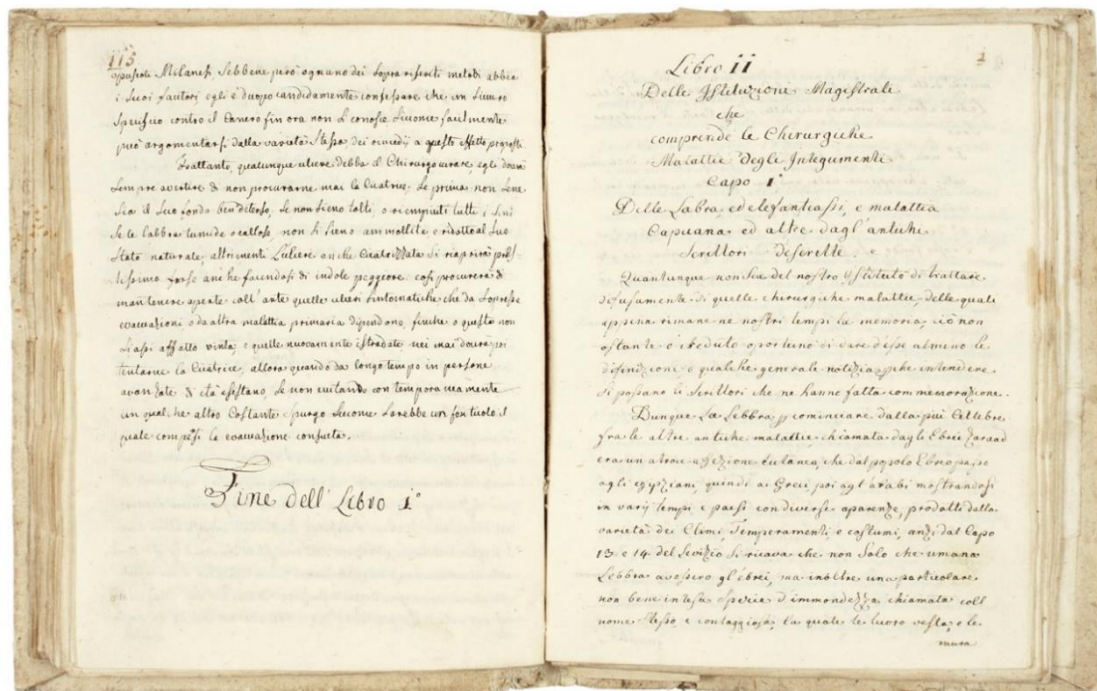 115
opuscoli Milanesi. Sebbene però ognuno dei sopra riferiti metodi abbia
i suoi fautori egli è duopo candidamente confessare che un sicuro
specifico contro il Canero fin ora non si conosce siccome facilmente
può argomentarsi dalla varietà stessa dei remedij a questo effetto proposti
Frattanto, qualunque ulcere debba il Chirurgo curare, egli dovrà
sempre avertire di non procurarne mai la Cicatrice, se prima non sene
sia il suo fondo ben deterso, se non sieno tolti, o riempiuti tutti i seni
se le labbra tumide o callose non si sieno ammollite, e ridotte al suo
stato naturale, altrimenti l'ulcere anche Cicatrizzata si riaprirà pres-
tissimo forse anche facendosi di indole peggiore così procurerà di
mantenere aperte coll'arte quelle ulceri sintomatiche che da sopresse
evacuazioni o da altra malattia primaria dipendono, finche o questa non
siasi affatto vinta, e quelle nuovamente istradate, nei mai dovrà poi
tentarne la Cicatrice, allora quando da longo tempo in persone
avanzate di età esistano, se non eccitando contemporaneamente
un qualche altro Costante spurgo siccome sarebbe un fonticolo il
quale compensi le evacuazione consueta.
Fine dell' Libro 1°
1
Libro II
Delle Istituzione Magistrali
che
comprende le Chirurgiche
Malattie Degli Integumenti
Capo 1°
Della Labra, ed elefantiassi, e malattia
Capuana ed altre dagl' antichi
Scrittori descritte.
Quantunque non sia del nostro Istituto di trattare
difusamente di quelle chirurgiche malattie, delle quali
appena rimane ne nostri tempi la memoria, ciò non
ostante o creduto oportuno di dare d'esse almeno le
difinizioni e qualche generale notizia, pche intendere
si possano li Scrittori che ne hanno fatta commemorazione.
Dunque La Lebbra p cominciare dalla più Cellebre
fra le altre antiche malattie, chiamata dagli Ebrei Zaraad
era un atroce afezione cutanea, che dal popolo Ebreo passò
agli egizziani, quindi ai Greci, poi agl'arabi mostrandosi
in varij tempi e paesi con diverse aparenze, prodotti dalla
varietà dei Climi, Temperamenti, e costumi, anzi dal Capo
13. e 14. del Levitico si ricava che non solo che umana
Lebbra avessero gl'ebrei, ma inoltre una particolare
non bene intesa specie d'immondezza chiamata coll
nome stesso e contaggiosa, la quale le lucro vesti, e le
mura